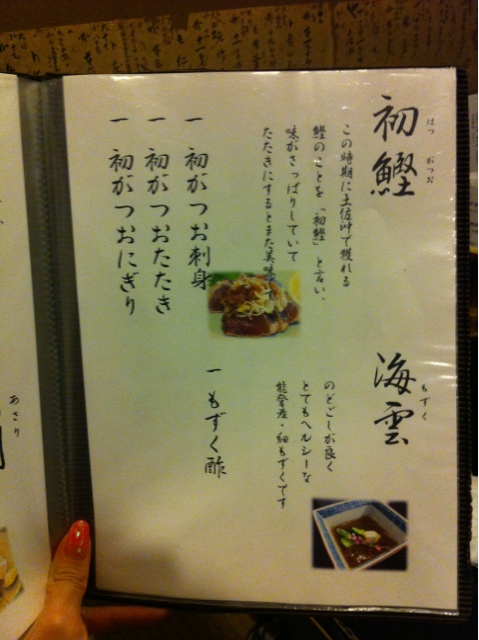 初鰹
はつ がつお
この時期に土佐沖で獲れる
鰹のことを「初鰹」と言い、
味がさっぱりしていて
たたきにするとまた美味
一 初がつお刺身
一 初がつおたたき
一 初がつおにぎり
海雲
もずく
のどごしが良く
とてもヘルシーな
能登産・細もずくです
一 もずく酢
あさり